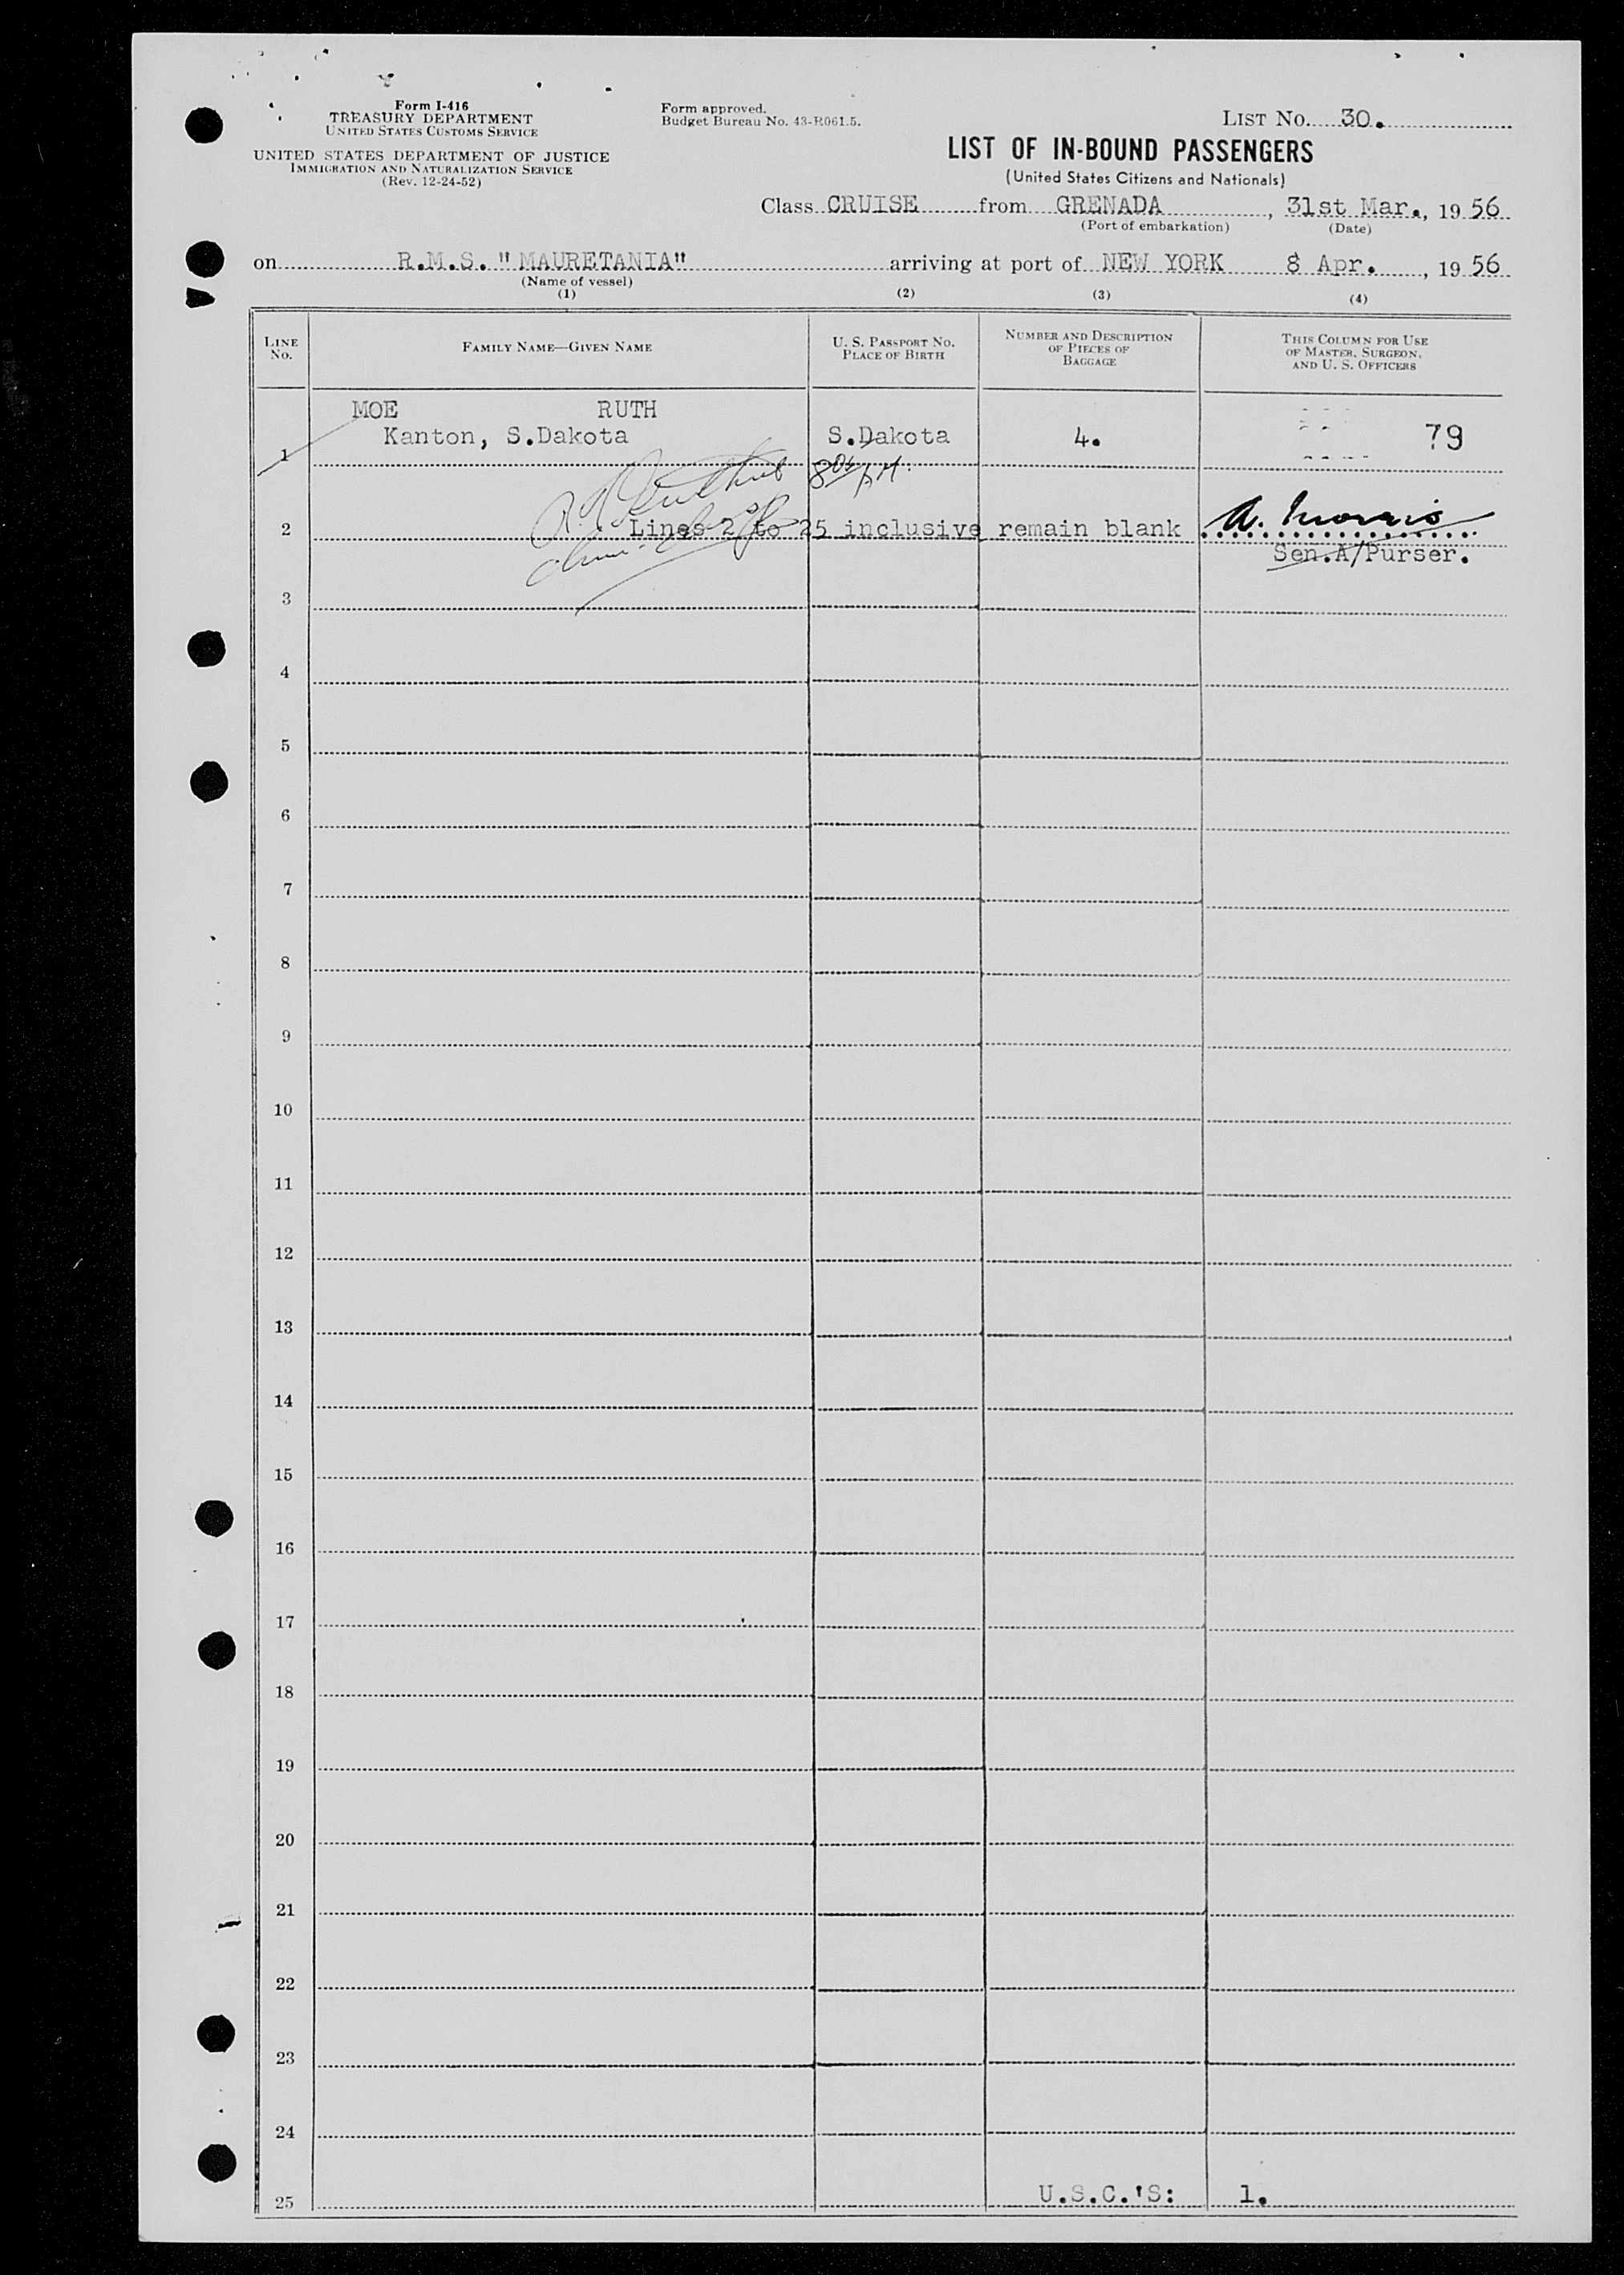 Form I-416
TREASURY DEPARTMENT
UNITED STATES CUSTOMS SERVICE
UNITED STATES DEPARTMENT OF JUSTICE
IMMIGRATION AND NATURALIZATION SERVICE
(Rev. 12-24-52)
Form approved.
Budget Bureau No. 43-R061.5.
LIST No. 30.
LIST OF IN-BOUND PASSENGERS
(United States Citizens and Nationals)
Class CRUISE from GRENADA, 31st Mar., 19 56
(Port of embarkation) (Date)
on R.M.S. "MAURETANIA" arriving at port of NEW YORK 8 Apr., 19 56
(Name of vessel)
(1) (2) (3) (4)
LINE No. FAMILY NAME—GIVEN NAME U. S. PASSPORT NO. PLACE OF BIRTH NUMBER AND DESCRIPTION OF PIECES OF BAGGAGE THIS COLUMN FOR USE OF MASTER, SURGEON, AND U. S. OFFICERS
MOE RUTH
1 Kanton, S.Dakota S.Dakota 4. 79
2 Lines 2 to 25 inclusive remain blank A. Morris
Sen.A/Purser.
3
4
5
6
7
8
9
10
11
12
13
14
15
16
17
18
19
20
21
22
23
24
25 U.S.C.'S: 1.